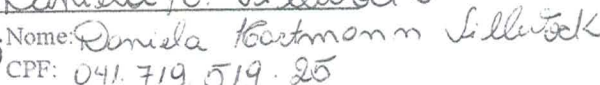 Nome: Daniela Hartmann Sillwock
CPF: 041.719.519.25